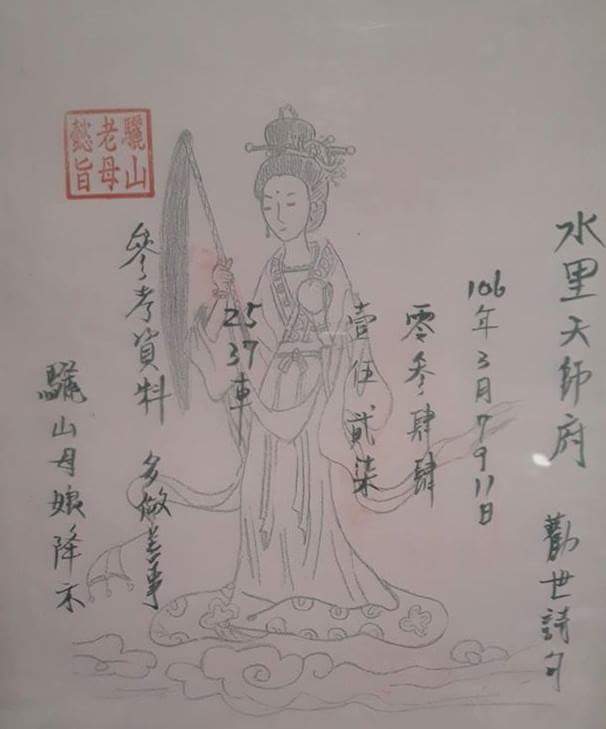 水里天師府
勸世詩句
106年3月7 9 11日
零參肆肆
壹伍貳柒
25
37車
參考資料 多做善事
驪山母娘降示
驪山
老母
懿旨